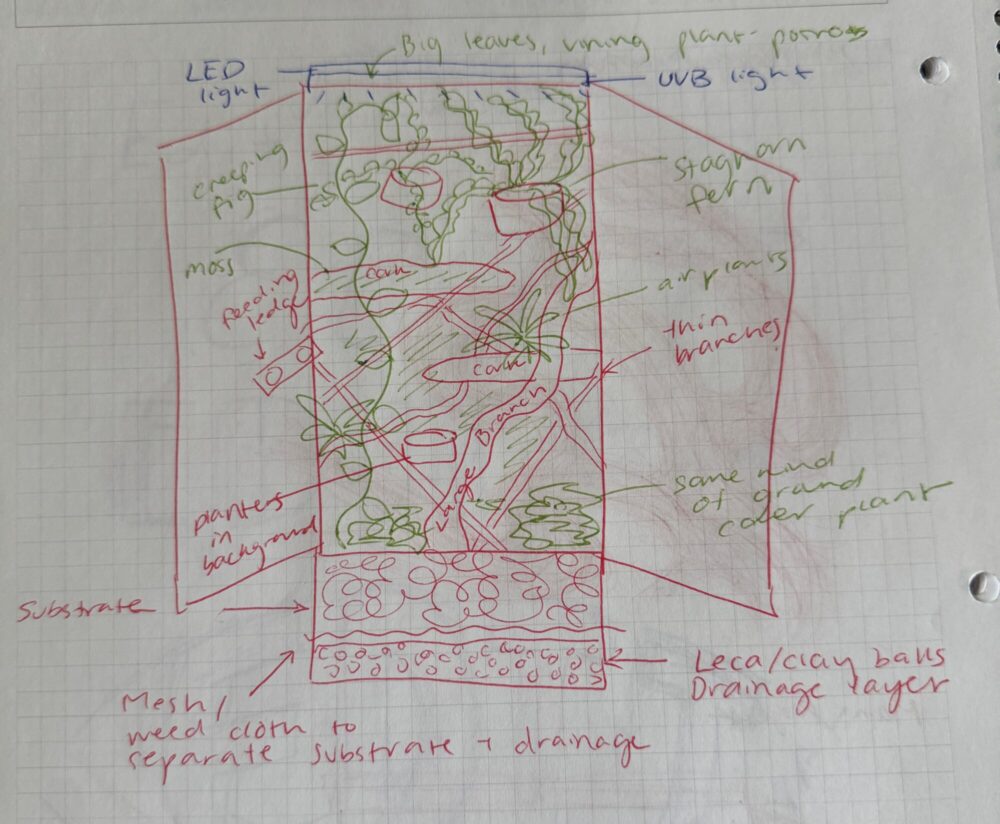 Big leaves, vining plant- potros
LED
light
UVB light
creeping
fig
staghorn
fern
moss
cork
feeding
ledge
air plants
thin
branches
cork
Large Branch
planters
in
background
some kind
of ground
cover plant
Substrate
Mesh/
weed cloth to
separate substrate + drainage
Leca/clay balls
Drainage layer